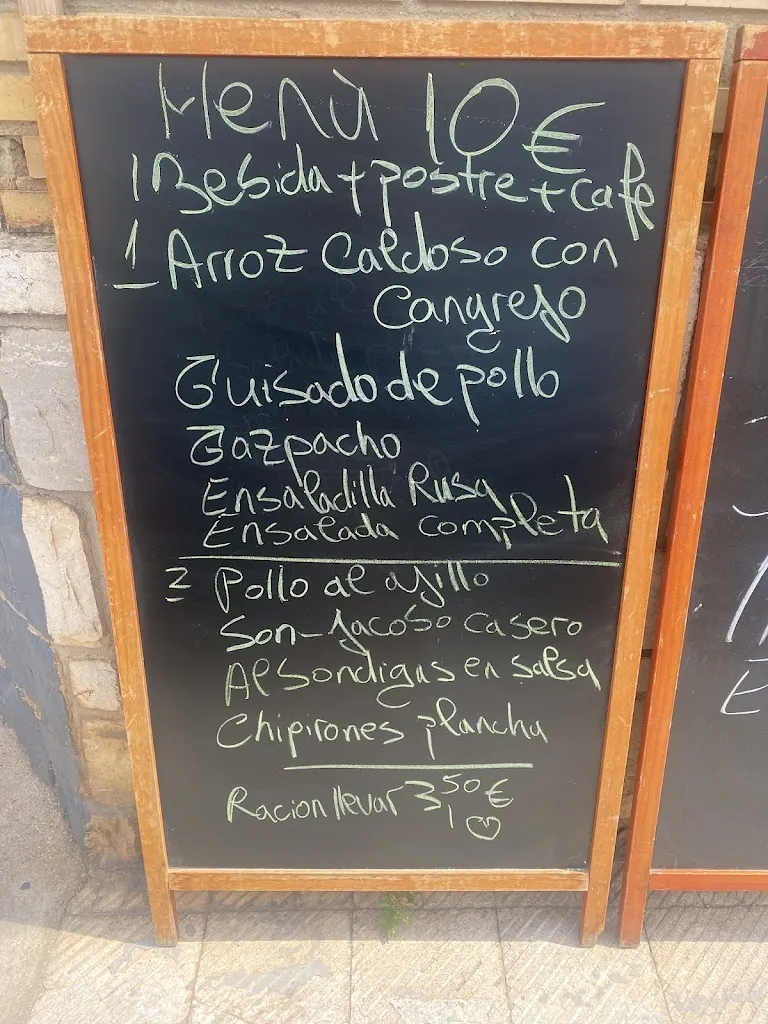 Menù 10€
1 Bebida + postre + cafe
1 Arroz Caldoso con
Cangrejo
Guisado de pollo
Gazpacho
Ensaladilla Rusa
Ensalada completa
2 Pollo al ajillo
San-Jacobo casero
Albondigas en salsa
Chipirones plancha
Racion llevar 3,50€